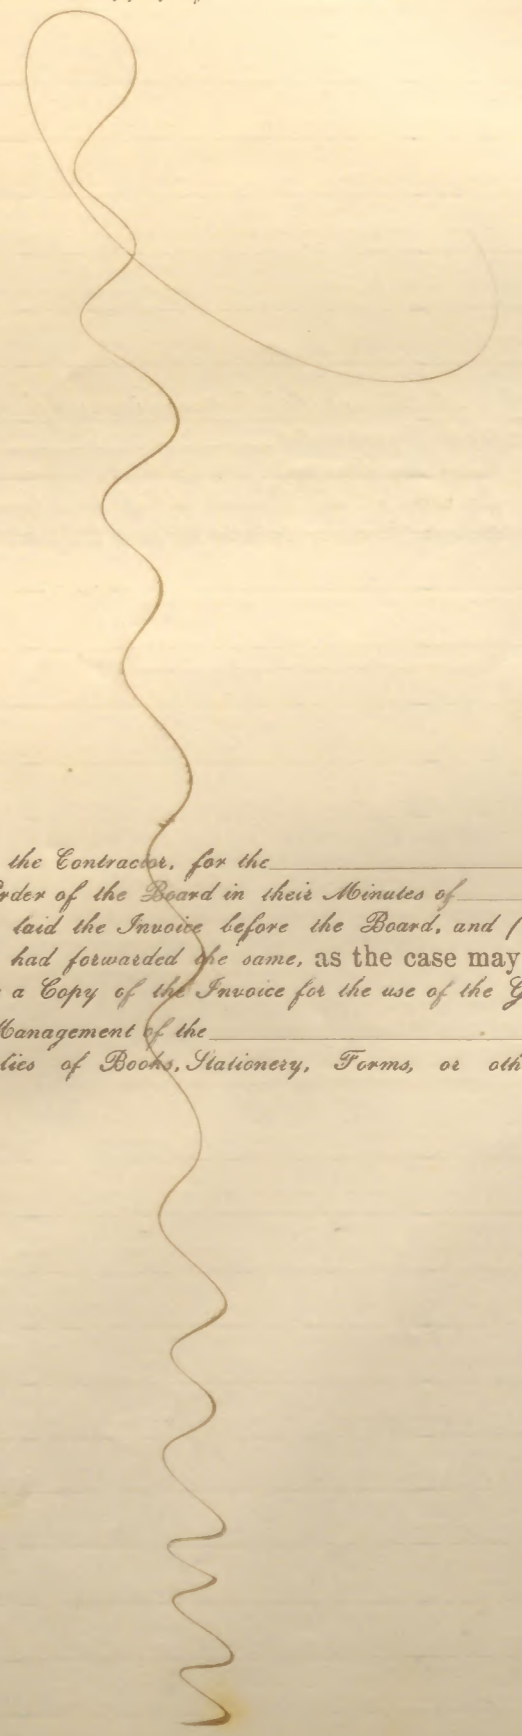 the Contractor, for the
Order of the Board in their Minutes of
laid the Invoice before the Board, and (
had forwarded the same, as the case may
a Copy of the Invoice for the use of the
Management of the
of Books, Stationery, Forms, or oth